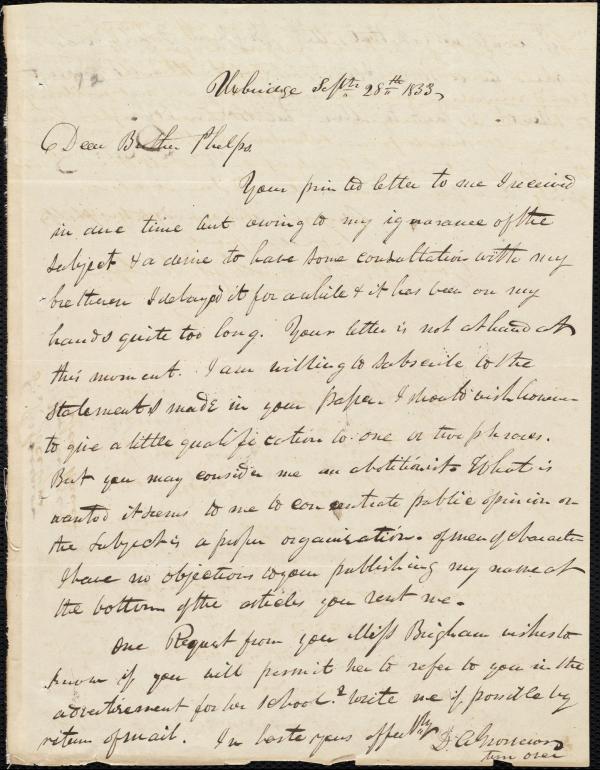 Uxbridge Septr 28th 1833,
Dear Brother Phelps.
Your printed letter to me I received
in due time but owing to my ignorance of the
subject & a desire to have some consultation with my
brethren I delayed it for a while & it has been on my
hands quite too long. Your letter is not at hand at
this moment. I am willing to subscribe to the
statements made in your paper. I should wish however
to give a little qualification to one or two phrases.
But you may consider me an abolitionist. What is
wanted it seems to me to concentrate public opinion on
the subject is a proper organization. of men of character
I have no objections to your publishing my name at
the bottom of the articles you sent me.
One Request from you Miss Brigham wishes to
know if you will permit her to refer to you in the
advertisement for her school? Write me if possible by
return of mail. In haste yours affectly
D. Grosvenor
turn over